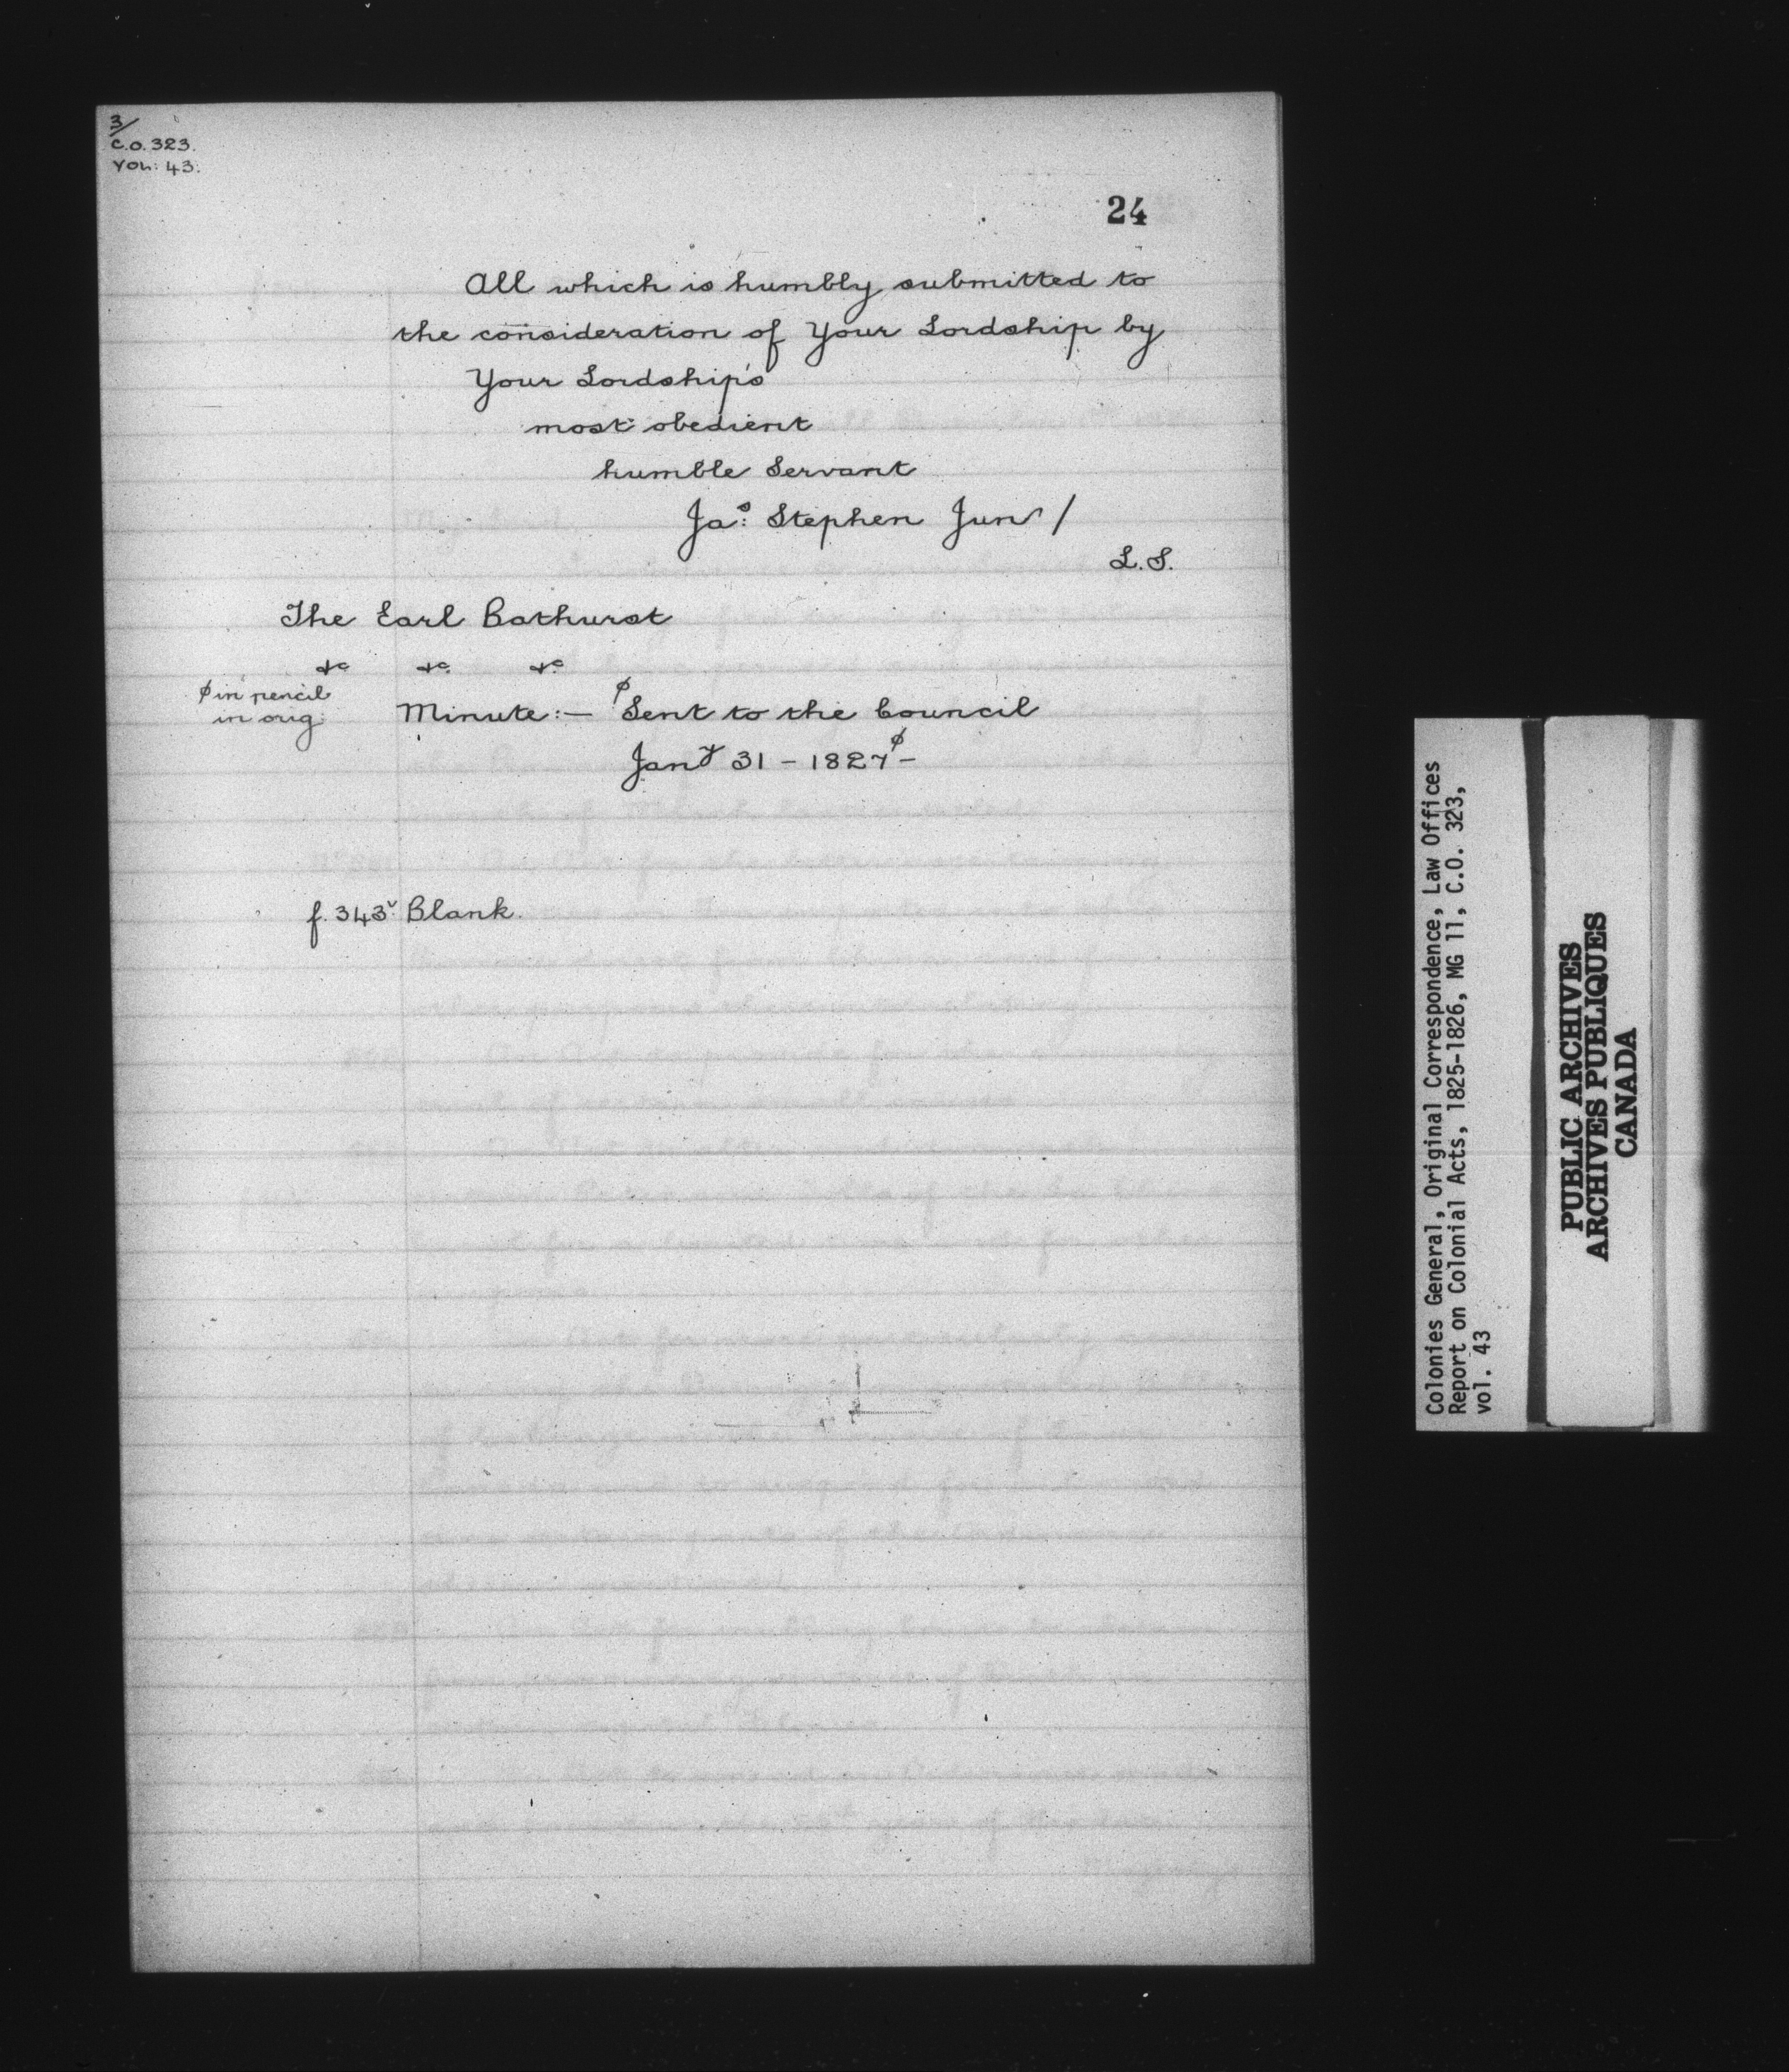 3/
C.O. 323.
Vol: 43.
24
All which is humbly submitted to
the consideration of Your Lordship by
Your Lordship's
most obedient
humble Servant
Jas: Stephen Junr /
L.S.
The Earl Bathurst
&c &c. &c.
ϕ in pencil
in orig.
Minute:— ϕSent to the Council
Jany 31 – 1827ϕ –
f. 343v. Blank.
Colonies General, Original Correspondence, Law Offices
Report on Colonial Acts, 1825-1826, MG 11, C.O. 323,
vol. 43
PUBLIC ARCHIVES
ARCHIVES PUBLIQUES
CANADA